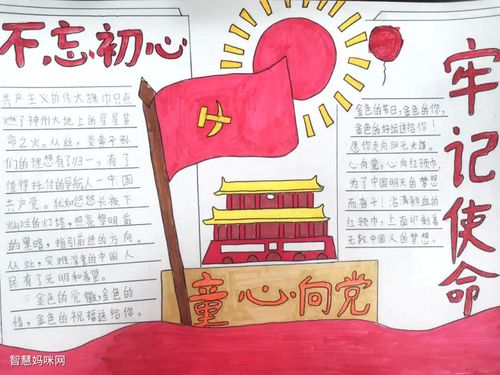 不忘初心
共产主义的伟大旗帜只点
燃了神州大地上的星星革
命之火。从此，炎黄子孙
们的理想有了归一，有了
值得担付的导航人—中国
共产党。我如悠悠长夜下
灿灿的灯塔，照亮黎明前
的黑暗，指引前进的方向。
从此，灾难深重的中国人
民有了光明和希望。
金色的党徽，金色的
情，金色的祝福送给你。
童心向党
金色的节日，金色的你，
金色的好运送给你！
愿你走向阳光大道。
心向党，心向红领巾，
为了中国明天的梦想
而奋斗！沾满鲜血的
红领巾，上面印刻着
无数中国人的梦想。
牢记使命
智慧妈咪网